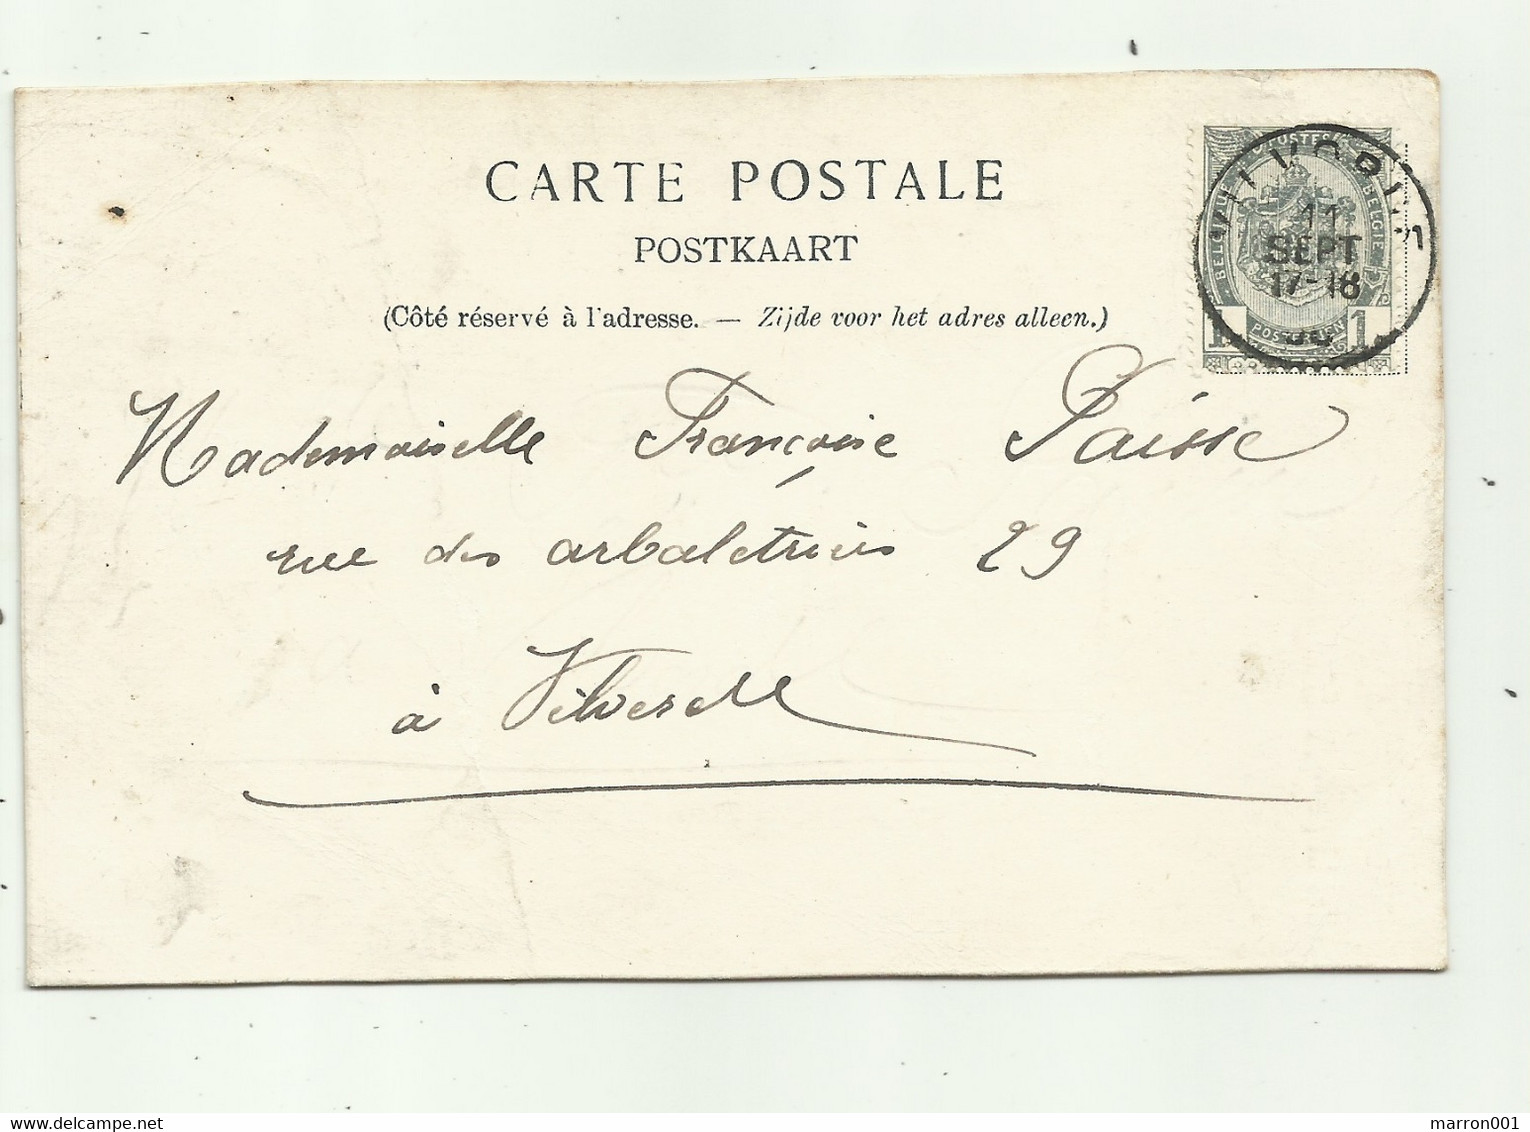 CARTE POSTALE
POSTKAART
(Côté réservé à l'adresse. — Zijde voor het adres alleen.)
POSTES
BELGIQUE
BELGIË
1 1
VILVORDE
11
SEPT
17-18
Mademoiselle Françoise Paisse
rue des arbaletriers 29
à Vilvorde
delcampe.net
marron001